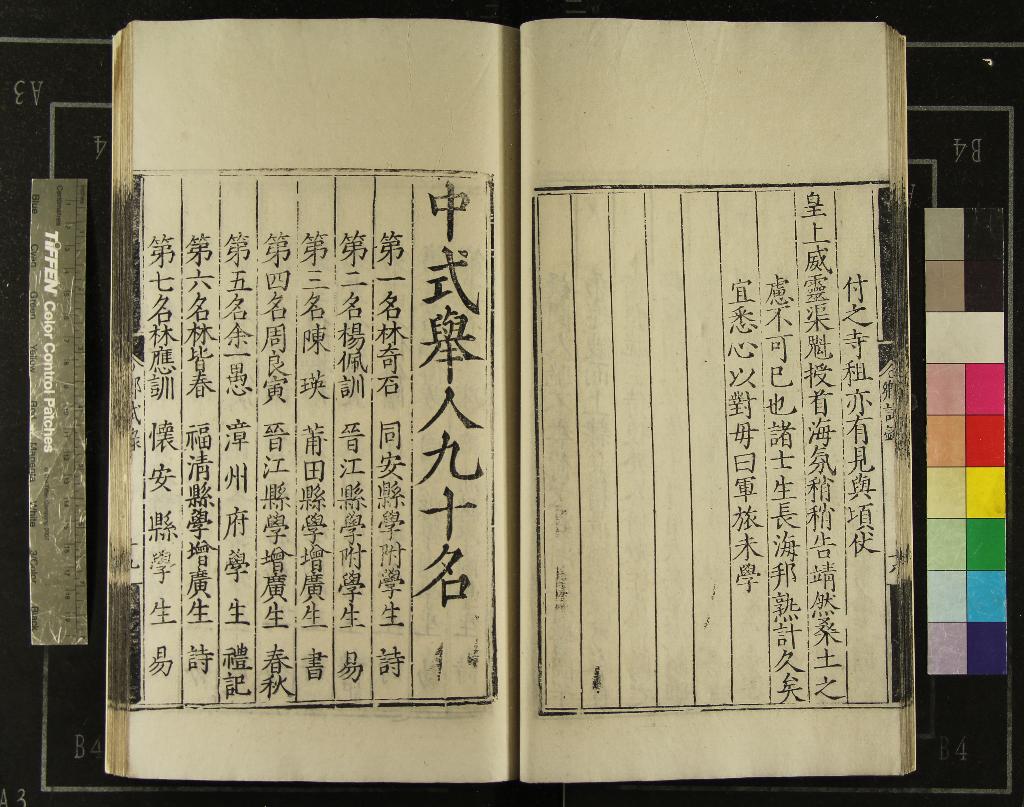 付之寺租亦有見與頃伏
皇上威靈渠魁授首海氛稍稍告靖然桑土之
慮不可已也諸士生長海邦熟計久矣
宜悉心以對毋曰軍旅未學
中式舉人九十名
第一名林奇石 同安縣學附學生 詩
第二名楊佩訓 晉江縣學附學生 易
第三名陳瑛 莆田縣學增廣生 書
第四名周良寅 晉江縣學增廣生 春秋
第五名余一愚 漳州府學生 禮記
第六名林皆春 福清縣學增廣生 詩
第七名林應訓 懷安縣學生 易
TIFFEN Color Control Patches
A3
B4
B4
A3